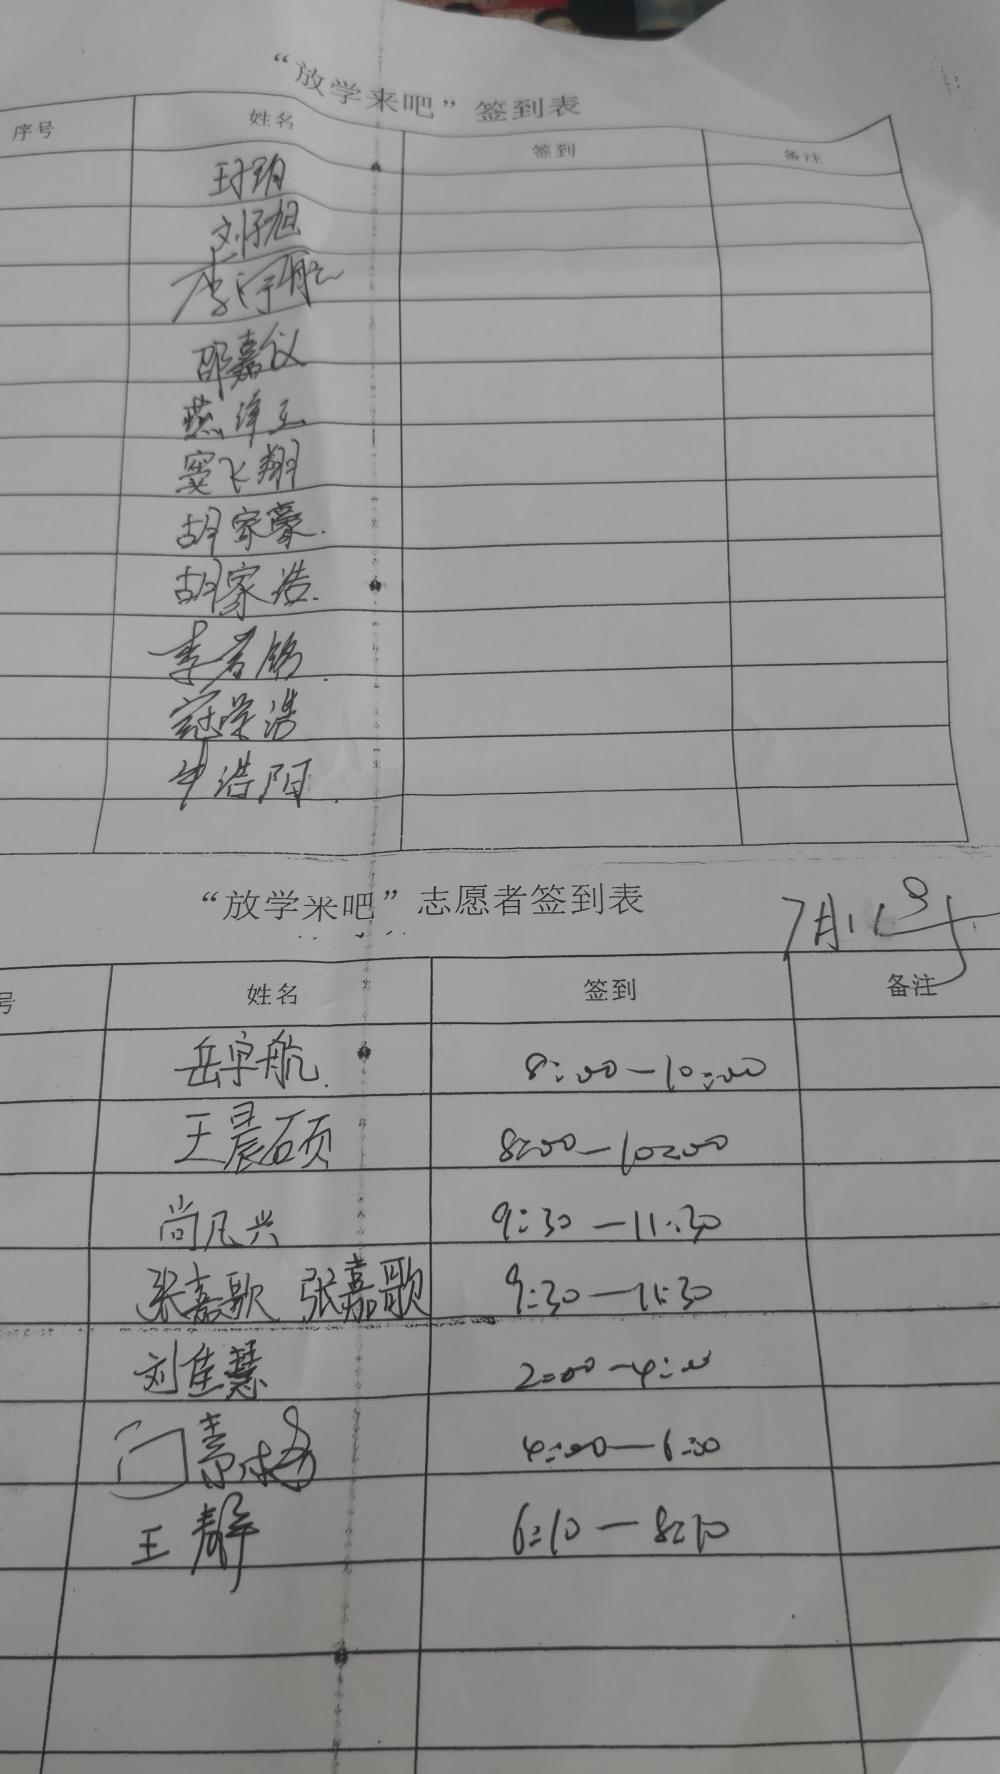 “放学来吧”签到表
序号 姓名 签到 备注
刘子旭
李宇航
邵嘉仪
燕泽玉
窦飞翔
胡家豪.
胡家浩.
李若铭.
寇荣浩
牛浩阳.
“放学来吧”志愿者签到表
7月19号
号 姓名 签到 备注
岳宇航. 8:00—10:00
王晨硕 8:00—10:00
尚凡兴 9:30—11:30
张嘉歌 张嘉歌 9:30—11:30
刘佳慧 2:00—4:00
门素梅 4:00—6:00
王静 6:10—8:10